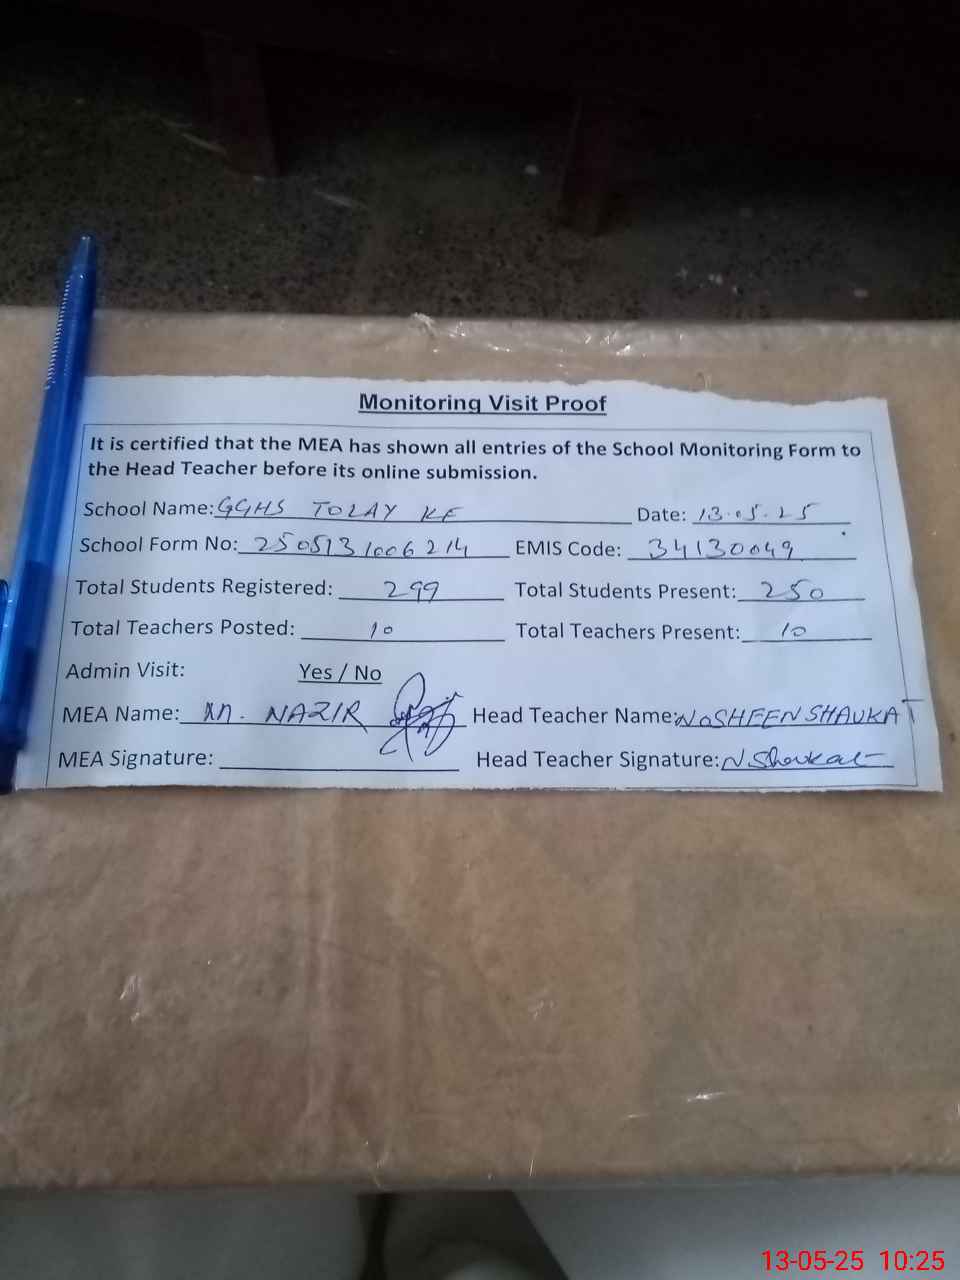 Monitoring Visit Proof
It is certified that the MEA has shown all entries of the School Monitoring Form to
the Head Teacher before its online submission.
School Name: GGHS TOLAY KE Date: 13.05.25
School Form No: 2505131006214 EMIS Code: 34130049
Total Students Registered: 299 Total Students Present: 250
Total Teachers Posted: 10 Total Teachers Present: 10
Admin Visit: Yes / No
MEA Name: M. NAZIR Head Teacher Name: NOSHEEN SHAUKAT
MEA Signature: Head Teacher Signature: N Shaukat
13-05-25 10:25